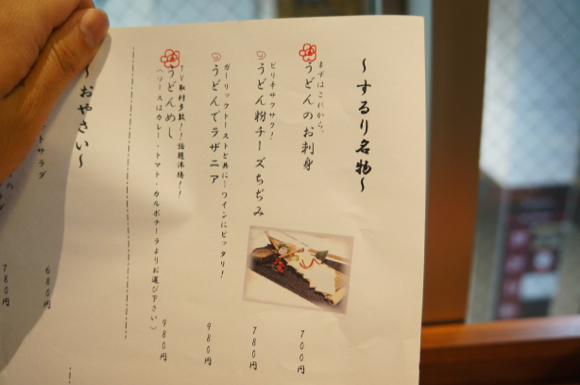 ～するり名物～
まずはこれから。
うどんのお刺身
700円
ピリ辛サクサク！
うどん粉チーズちぢみ
780円
ガーリックトーストと共に！ワインにピッタリ！
うどんでラザニア
980円
TV取材多数！！話題沸騰！！
うどんめし
（ソースはカレー・トマト・カルボナーラよりお選び下さい）
980円
～おやさい～
トサラダ
680円
780円